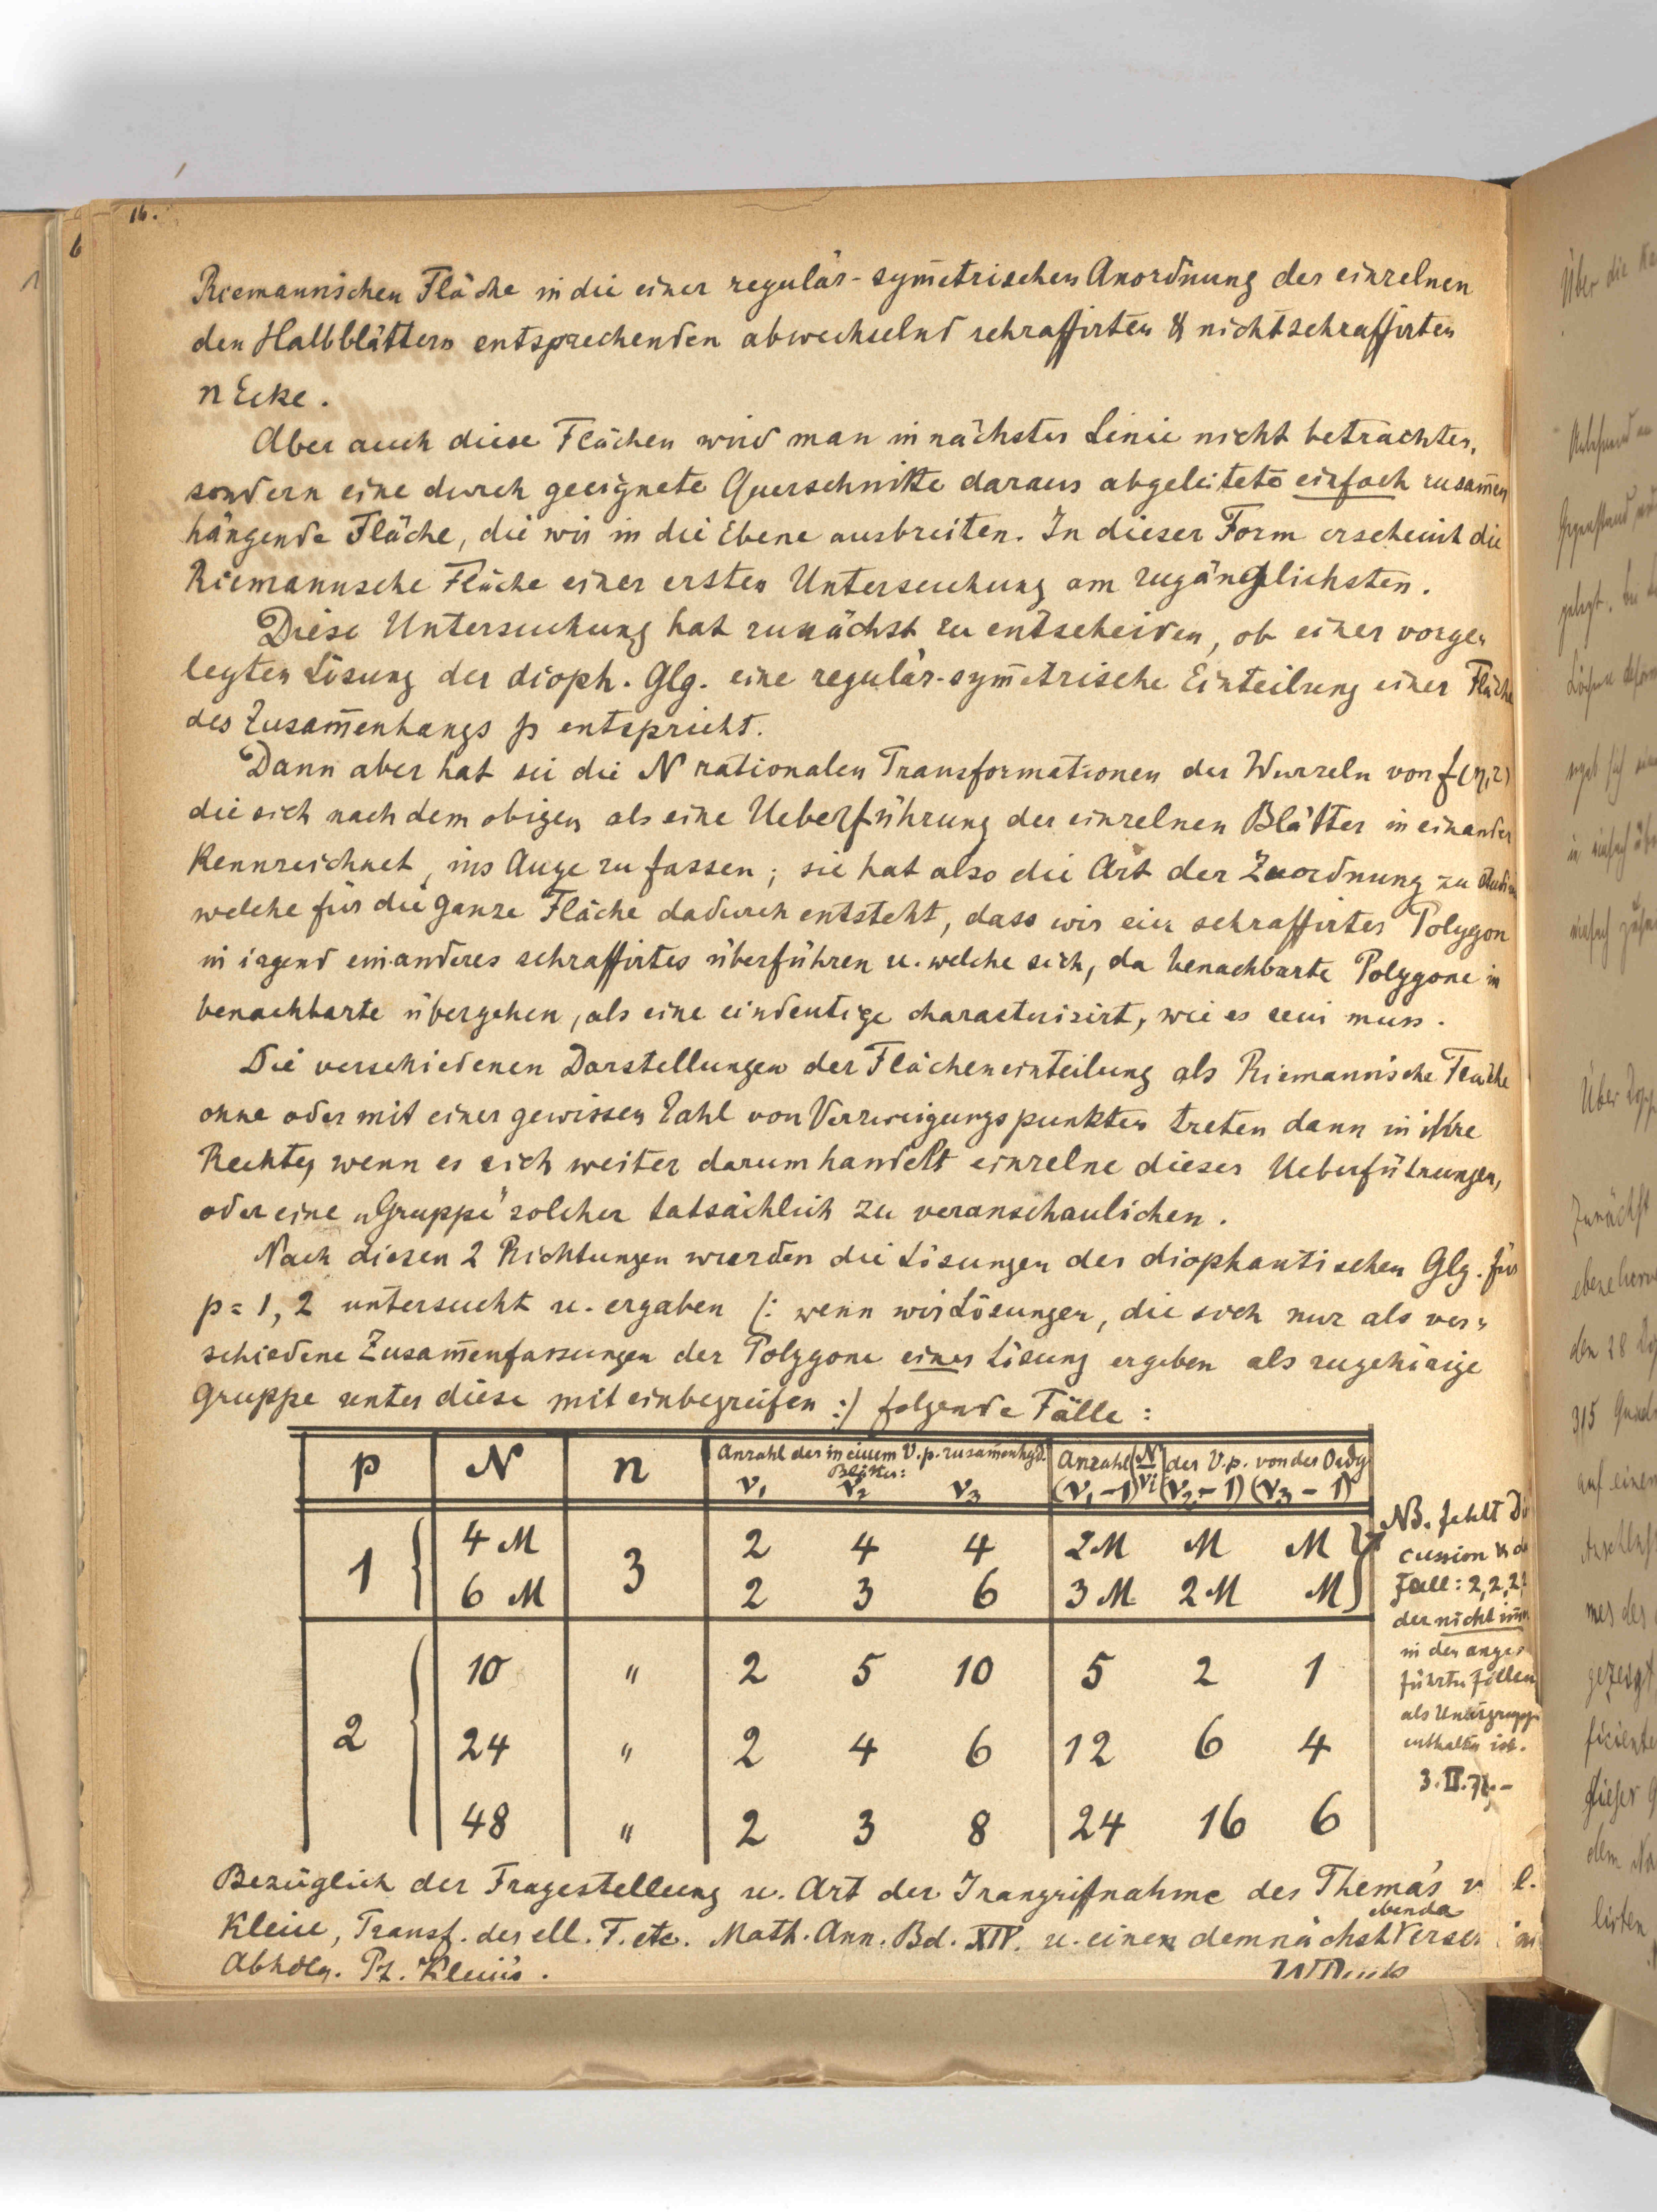 16.
6
Riemannischen Fläche in die einer regulär-sym̅etrischen Anordnung der einzelnen
den Halbblättern entsprechenden abwechselnd schraffirten & nichtschraffirten
n Ecke.
Aber auch diese Flächen wird man in nächster Linie nicht betrachten,
sondern eine durch geeignete Querschnitte daraus abgeleitete einfach zusam̅en
hängende Fläche, die wir in die Ebene ausbreiten. In dieser Form erscheint die
Riemannsche Fläche einer ersten Untersuchung am zugänglichsten.
Diese Untersuchung hat zunächst zu entscheiden, ob einer vorge„
legten Lösung der dioph. Glg. eine regulär-sym̅etrische Einteilung einer Fläche
des Zusam̅enhangs p entspricht.
Dann aber hat sie die N rationalen Transformationen der Wurzeln von f(η,z)
die sich nach dem obigen als eine Ueberführung der einzelnen Blätter in einander
kennzeichnet, ins Auge zu fassen; sie hat also die Art der Zuordnung zu
welche für die ganze Fläche dadurch entsteht, dass wir ein schraffirtes Polygon
in irgend ein anderes schraffirtes überführen u. welche sich, da benachbarte Polygone in
benachbarte übergehen, als eine eindeutige characterisirt, wie es sein muss.
Die verschiedenen Darstellungen der Flächeneinteilung als Riemannische Fläche
ohne oder mit einer gewissen Zahl von Verzweigungspunkten treten dann in ihre
Rechte, wenn es sich weiter darum handelt einzelne dieser Ueberführungen,
oder eine „Gruppe" solcher tatsächlich zu veranschaulichen.
Nach diesen 2 Richtungen wurden die Lösungen der diophantischen Glg. für
p = 1, 2 untersucht u. ergaben (: wenn wir Lösungen, die sich nur als ver„
schiedene Zusam̅enfassungen der Polygone einer Lösung ergeben als zugehörige
Gruppe unter diese mit einbegreifen :) folgende Fälle:
p N n Anzahl der in einem V.p. zusam̅enhgd. Blätter: ν₁ ν₂ ν₃ Anzahl (N/νi) der V.p. von der Ordg (ν₁-1) (ν₂-1) (ν₃-1)
1 4 M 3 2 4 4 2M M M
6 M 2 3 6 3M 2M M
2 10 " 2 5 10 5 2 1
24 " 2 4 6 12 6 4
48 " 2 3 8 24 16 6
NB. fehlt
cussion
Fall: 2, 2, 2,
der nicht
in den ange„
führten Fällen
als Untergruppe
enthalten ist.
Bezüglich der Fragestellung u. Art der Inangrifnahme des Themas
Klein, Transf. der ell. F. etc. Math. Ann. Bd. XIV. u. einer demnächst ebenda
Abhdlg. Pf. Klein's.